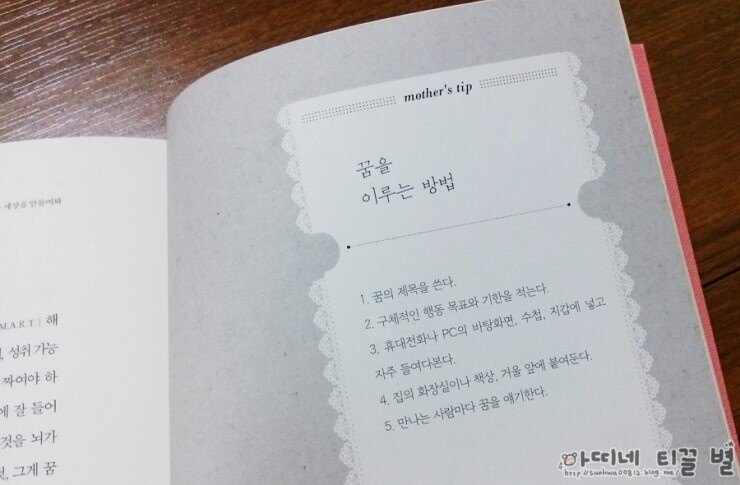 세상을 만들어봐
M.A.R.T | 해
, 성취가능
짜여야 하
에 잘 들어
것을 뇌가
, 그게 꿈
mother's tip
꿈을
이루는 방법
1. 꿈의 제목을 쓴다.
2. 구체적인 행동 목표와 기한을 적는다.
3. 휴대전화나 PC의 바탕화면, 수첩, 지갑에 넣고
자주 들여다본다.
4. 집의 화장실이나 책상, 거울 앞에 붙여둔다.
5. 만나는 사람마다 꿈을 얘기한다.
아띠네 티끌 별
http://sunhwa0812.blog.me/